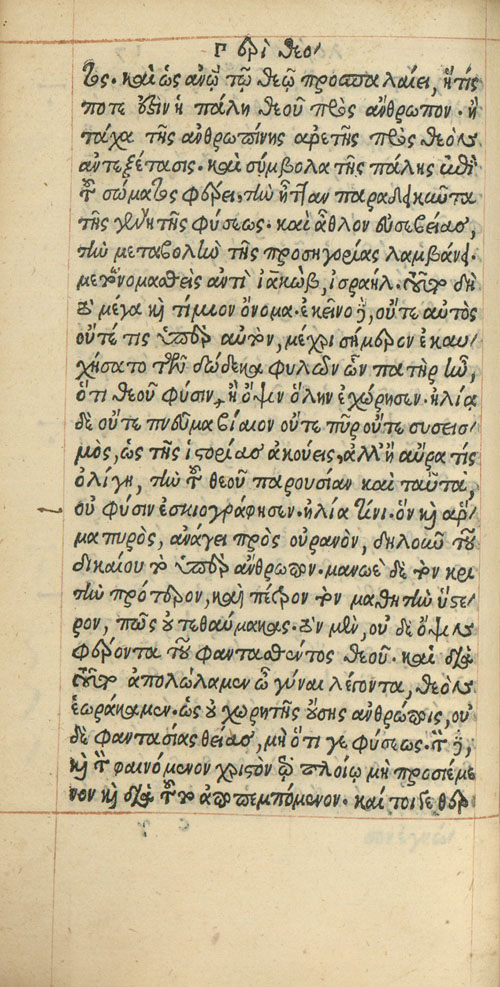 Γ περὶ θεο
τος. καὶ ὡς ἀνῳ τῷ θεῷ προσπαλαίει, ἥτις
ποτε ἐστὶν ἡ πάλη θεοῦ πρὸς ἄνθρωπον. ἢ
τάχα τῆς ἀνθρωπίνης ἀρετῆς πρὸς θεὸν
ἀντεξέτασις. καὶ σύμβολα τῆς πάλης ἐπὶ
τοῦ σώματος φέρει. τὴν ἧτταν παραδεικνῦντα
τῆς γεννητῆς φύσεως. καὶ ἆθλον εὐσεβείας,
τὴν μεταβολὴν τῆς προσηγορίας λαμβάνει.
μετονομασθεὶς ἀντὶ ἰακὼβ, ἰσραήλ. τοῦτο δὴ
τὸ μέγα καὶ τίμιον ὄνομα. ἐκεῖνο δὲ, οὔτε αὐτὸς
οὔτέ τις ὑπὲρ αὐτὸν, μέχρι σήμερον ἐκαυ
χήσατο τῶν δώδεκα φυλῶν ὧν πατὴρ ἦν,
ὅτι θεοῦ φύσιν, ἢ ὄψιν ὅλην ἐχώρησεν. ἠλίᾳ
δὲ οὔτε πνεῦμα βίαιον οὔτε πῦρ οὔτε συσεισ
μὸς, ὡς τῆς ἱστορίας ἀκούεις, ἀλλ' ἢ αὔρα τίς
ὀλίγη, τὴν τοῦ θεοῦ παρουσίαν καὶ ταῦτα,
οὐ φύσιν ἐσκιογράφησεν. ἠλίᾳ τίνι. ὃν καὶ ἅρ
μα πυρὸς, ἀνάγει πρὸς οὐρανὸν, δηλοῦν τοῦ
δικαίου τὸ ὑπὲρ ἄνθρωπον. μανωὲ δὲ τὸν κρι
τὴν πρότερον, καὶ πέτρον τὸν μαθητὴν ὕστε
ρον, πῶς οὐ τεθαύμακας. τὸν μὲν, οὐδὲ ὄψιν
φέροντα τοῦ φαντασθέντος θεοῦ. καὶ διὰ
τοῦτο ἀπολώλαμεν ὦ γύναι λέγοντα, θεὸν
ἑωράκαμεν. ὡς οὐ χωρητῆς οὔσης ἀνθρώποις, οὐ
δὲ φαντασίας θείας, μὴ ὅτι γε φύσεως. τὸν δὲ,
καὶ τὸν φαινόμενον χριστὸν τῷ πλοίῳ μὴ προσιέμε
νον καὶ διὰ τοῦτο ἀποπεμπόμενον. καί τοιγε θερ